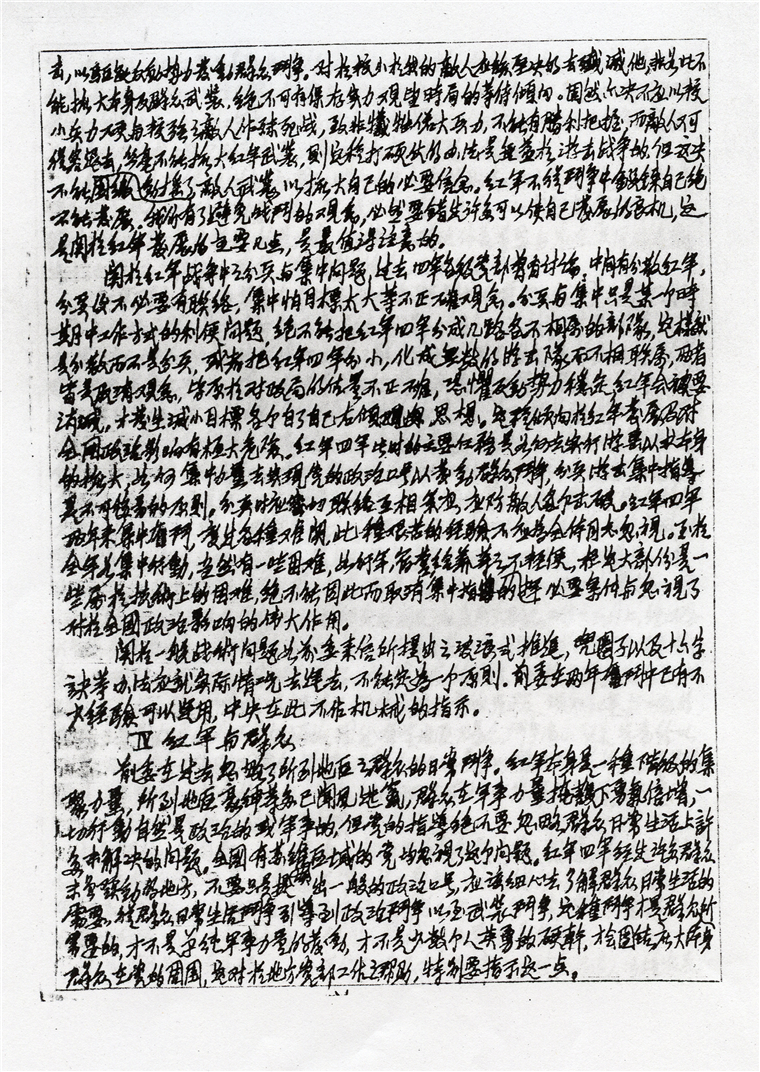 击，以驱逐反动势力发动群众斗争。对于较小于我的敌人应该坚决的去歼灭他，非是此不
能扩大本身及群众武装，绝不可有保存实力观望时局的等待倾向。固然亦决不应以较
小兵力硬与较强之敌人作殊死战，致非牺牲偌大兵力，不能有胜利把握，而敌人仍可
从容退去，结果不能扩大红军武装，则这种打硬仗的办法是无益于游击战争的，但这决
不能因缴了敌人武装以扩大自己的必要信念。红军不从斗争中锻炼自己绝
不能发展，我们有了避免战斗的观念，必然要错失许多可以使自己发展的良机，这
是关于红军发展的主要几点，是最值得注意的。
关于红军战争中之分兵与集中问题，过去四军各级党部曾有讨论，中间有分散红军，
分兵后不必要有联络，集中怕目标太大等不正确观念。分兵与集中只是某一个时
期中工作方式的利便问题，绝不能把红军四军分成几路各不相属的部队，这样就
是分散而不是分兵，或者把红军四军分小，化成无数的游击队而不相联属，两者
皆是取消观念，皆原于对政局的估量不正确，恐惧反动势力稳定，红军会被要
消灭，才发生减小目标各个自了自己右倾思想。这种倾向于红军发展及对
全国政治影响有极大危险。红军四军此时的主要任务是如何去实行游击以求本身
的扩大，如何集中力量去实现党的政治口号以发动群众斗争，分兵游击集中指导
是不可移易的原则。分兵时应密切联络互相策应，应防敌人各个击破。红军四军
两年来集中奋斗，发生各种难关，此种艰苦的经验不应为全体同志忽视。至于
全军是集中行动，当然有一些困难，如行军，宿营给养等之不轻便，但这大部份是一
些属于技术上的困难，绝不能因此而取消集中指挥的必要条件与忽视了
对于全国政治影响的伟大作用。
关于一般战术问题如前委来信所提出之波浪式推进，兜圈子以及十六字
诀等办法应就实际情况去运去，不能定为一个原则。前委在两年奋斗中已有不
少经验可以运用，中央在此不作机械的指示。
Ⅳ 红军与群众
前委在过去忽略了所到地区之群众的日常斗争。红军本身是一种下层阶级的集
聚力量，所到地区豪绅等多已闻风逃窜，群众在军事力量掩护下勇气倍增，一
切行动自然是政治的或军事的，但党的指导绝不要忽略群众日常生活上许
多未解决的问题。全国有苏维埃区域的党均忽视了这个问题。红军四军经过许多群众
未会发动的地方，不要只是提出一般的政治口号，应该细心去了解群众日常生活的
需要，从群众日常生活斗争引导到政治斗争以至武装斗争，这种斗争才是群众所
需要的，才不是单纯军事力量的发动，才不是少数个人英勇的硬干，才会团结广大群众
群众在党的周围，这对于地方党部工作之帮助，特别要指示这一点。